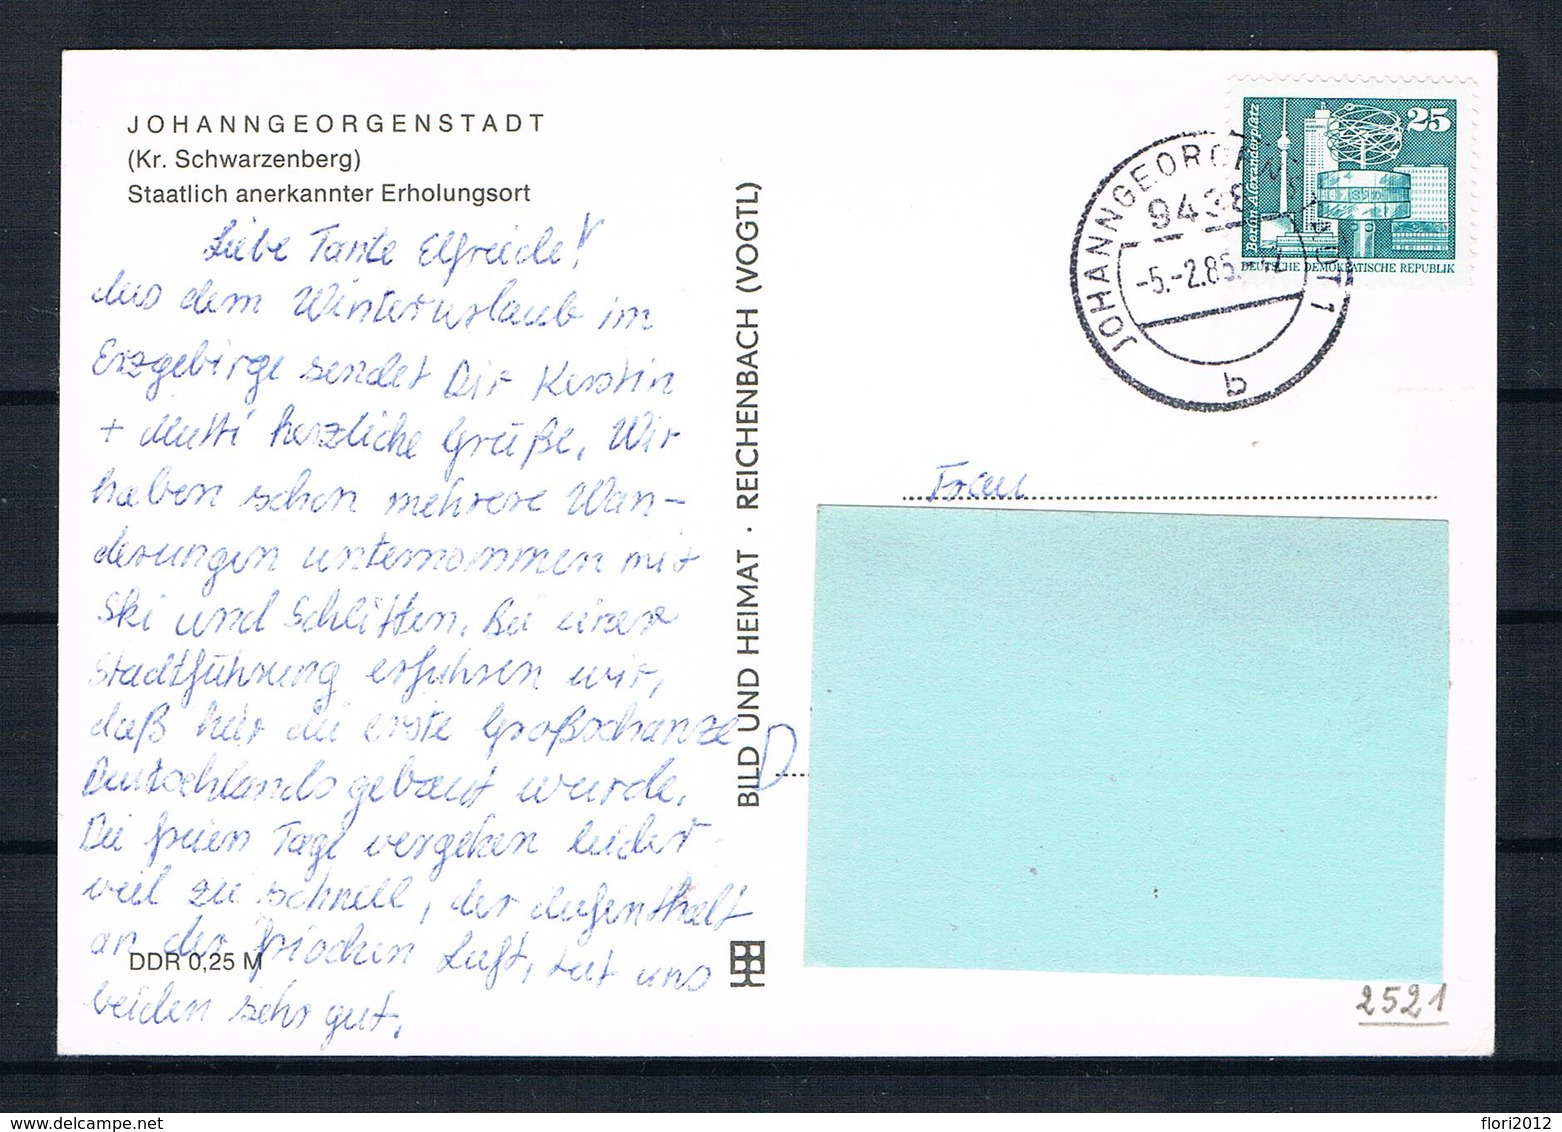 JOHANNGEORGENSTADT
(Kr. Schwarzenberg)
Staatlich anerkannter Erholungsort
Liebe Tante Elfriede!
Aus dem Winterurlaub im
Erzgebirge sendet Dir Kerstin
+ Mutti herzliche Grüße. Wir
haben schon mehrere Wan-
derungen unternommen mit
Ski und Schlitten. Bei einer
Stadtführung erfuhren wir,
daß hier die erste Großschanze
Deutschlands gebaut wurde.
Die freien Tage vergehen leider
viel zu schnell, der Aufenthalt
an der frischen Luft, tut uns
beiden sehr gut.
DDR 0,25 M
BILD UND HEIMAT · REICHENBACH (VOGTL)
25
Berlin-Alexanderplatz
DEUTSCHE DEMOKRATISCHE REPUBLIK
JOHANNGEORGENSTADT 1
-5.-2.85
b
Frau
D
2521
delcampe.net
flori2012